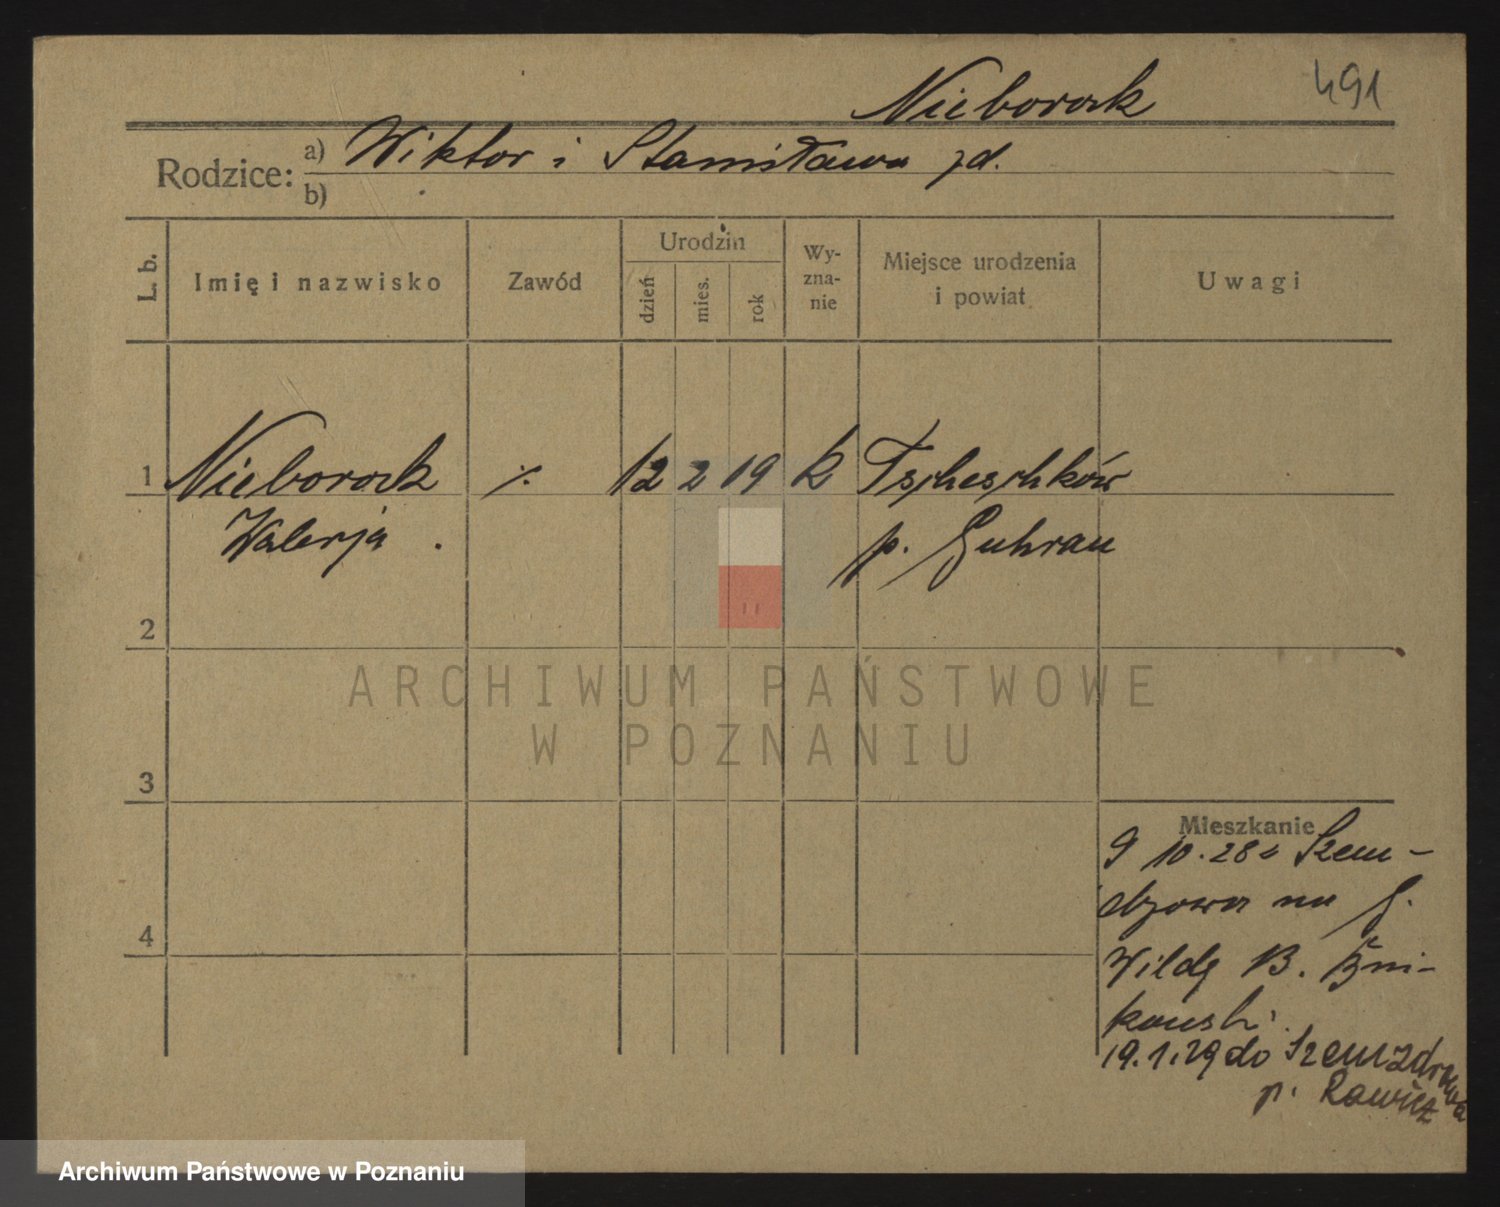 491
Nieborak
Rodzice: a) Wiktor i Stanisława zd.
b)
L. b.
Imię i nazwisko
Zawód
Urodzin
dzień
mies.
rok
Wy-
zna-
nie
Miejsce urodzenia
i powiat
Uwagi
1 Nieborak ./. 12 2 19 k Tscheschków
Walerja p. Guhrau
2
3
4
Mieszkanie
9 10.28 Szem-
dzowa na G.
Wildę B.
19.1.29 do Szemzdrowa
p. Rawicz
ARCHIWUM PAŃSTWOWE
W POZNANIU
Archiwum Państwowe w Poznaniu